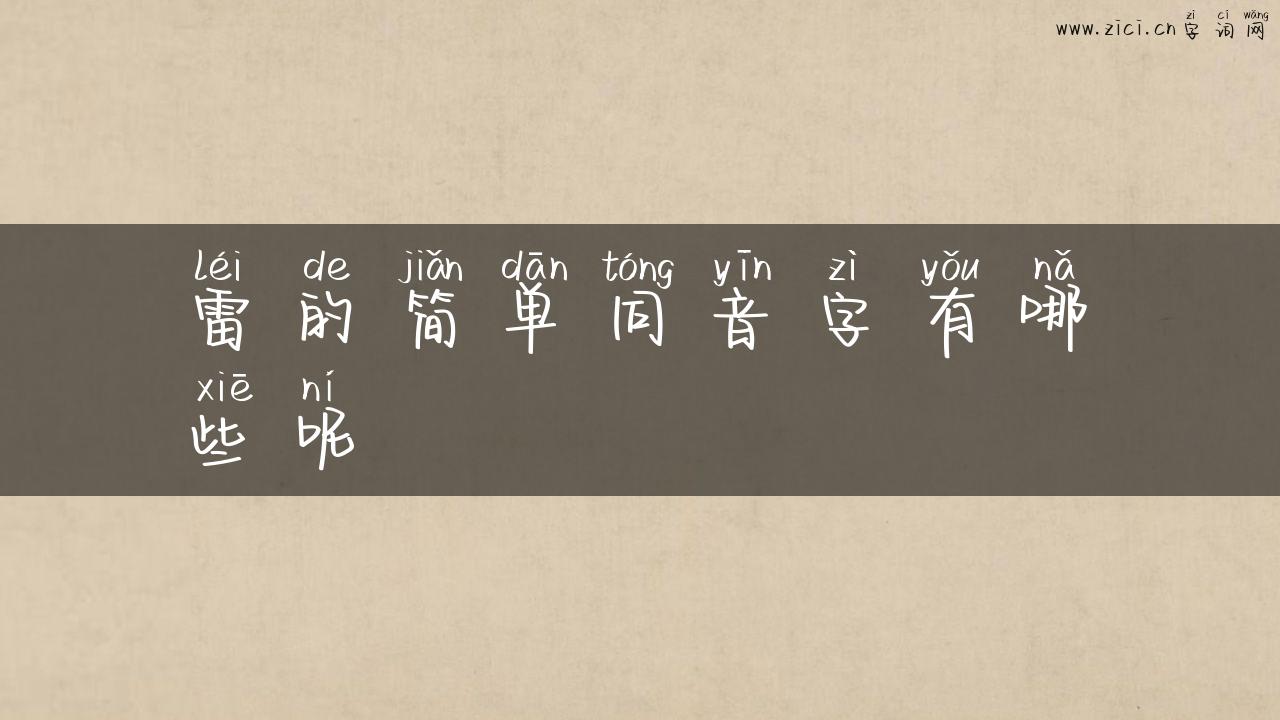 zì cí wǎng
www.zici.cn 字词网
léi de jiǎn dān tóng yīn zì yǒu nǎ
雷的简单同音字有哪
xiē ní
些呢